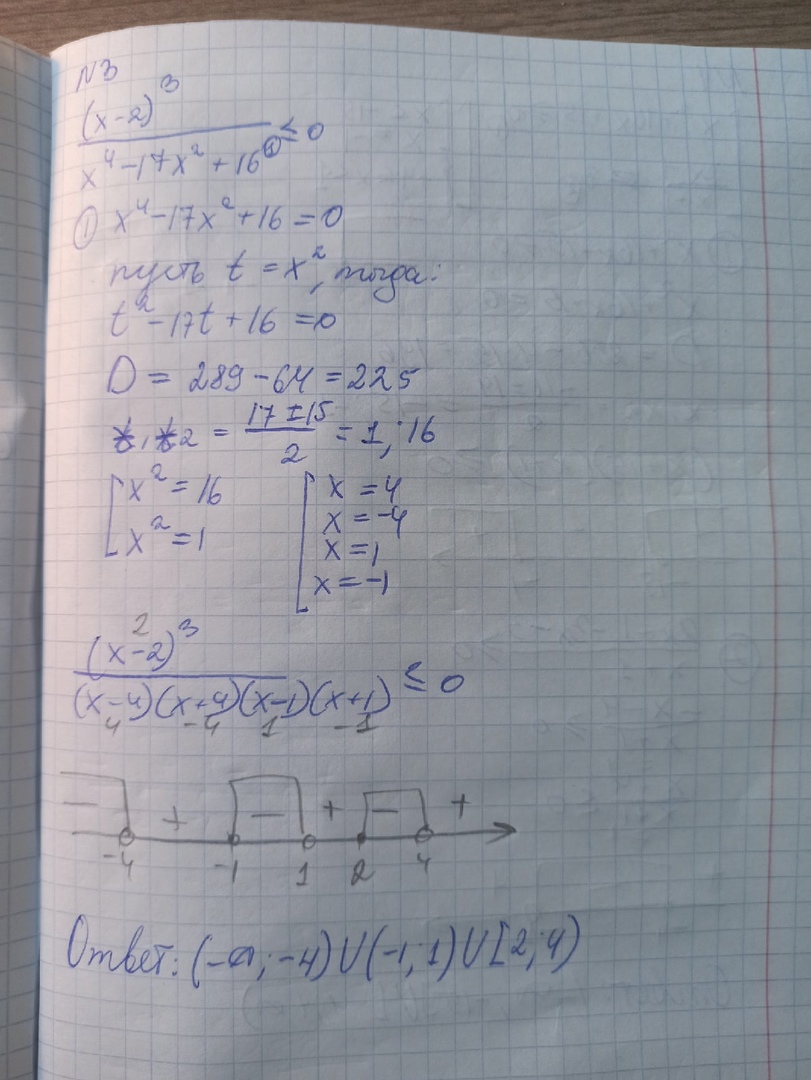 N3
(x-2)³
≤ 0
x⁴-17x²+16 ①
① x⁴-17x²+16=0
пусть t=x², тогда:
t²-17t+16=0
D = 289-64=225
t₁,t₂ = (17±15)/2 = 1; 16
x²=16 x=4
x²=1 x=-4
x=1
x=-1
2
(x-2)³
≤ 0
(x-4)(x+4)(x-1)(x+1)
4 -4 1 -1
- + - + - +
-4 -1 1 2 4
Ответ: (-∞; -4)∪(-1; 1)∪[2; 4)